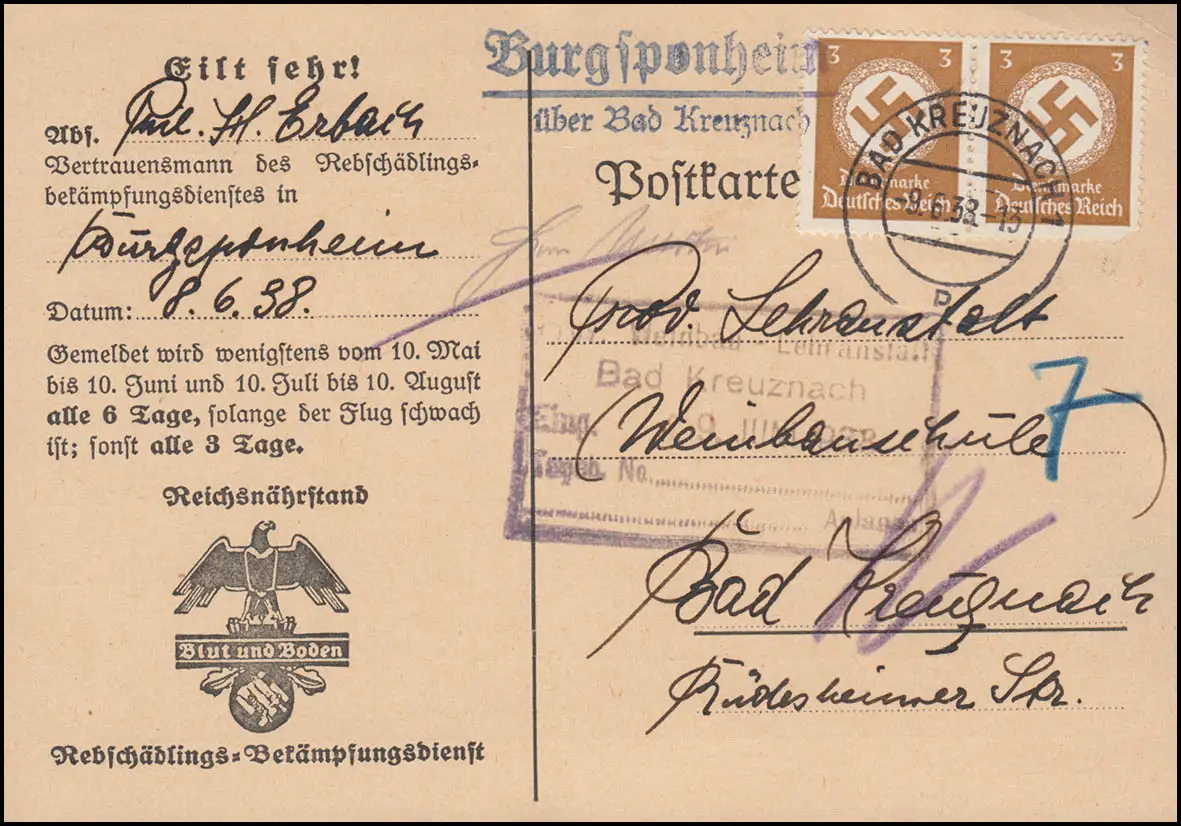 Eilt sehr!
Abs. H. Erbach
Vertrauensmann des Rebschädlings-
bekämpfungsdienstes in
Burgsponheim
Datum: 8.6.38.
Gemeldet wird wenigstens vom 10. Mai
bis 10. Juni und 10. Juli bis 10. August
alle 6 Tage, solange der Flug schwach
ist; sonst alle 3 Tage.
Reichsnährstand
Blut und Boden
Rebschädlings-Bekämpfungsdienst
Burgsponheim
über Bad Kreuznach
Postkarte
3 3
Dienstmarke
Deutsches Reich
3 3
Dienstmarke
Deutsches Reich
BAD KREUZNACH 1
-8.6.38.-15
b
Prov. Lehranstalt
Weinbau-Lehranstalt
Bad Kreuznach
Eing. 9. JUNI 1938
No.
Anlagen
7
(Weinbauschule)
Bad Kreuznach
Rüdesheimer Str.